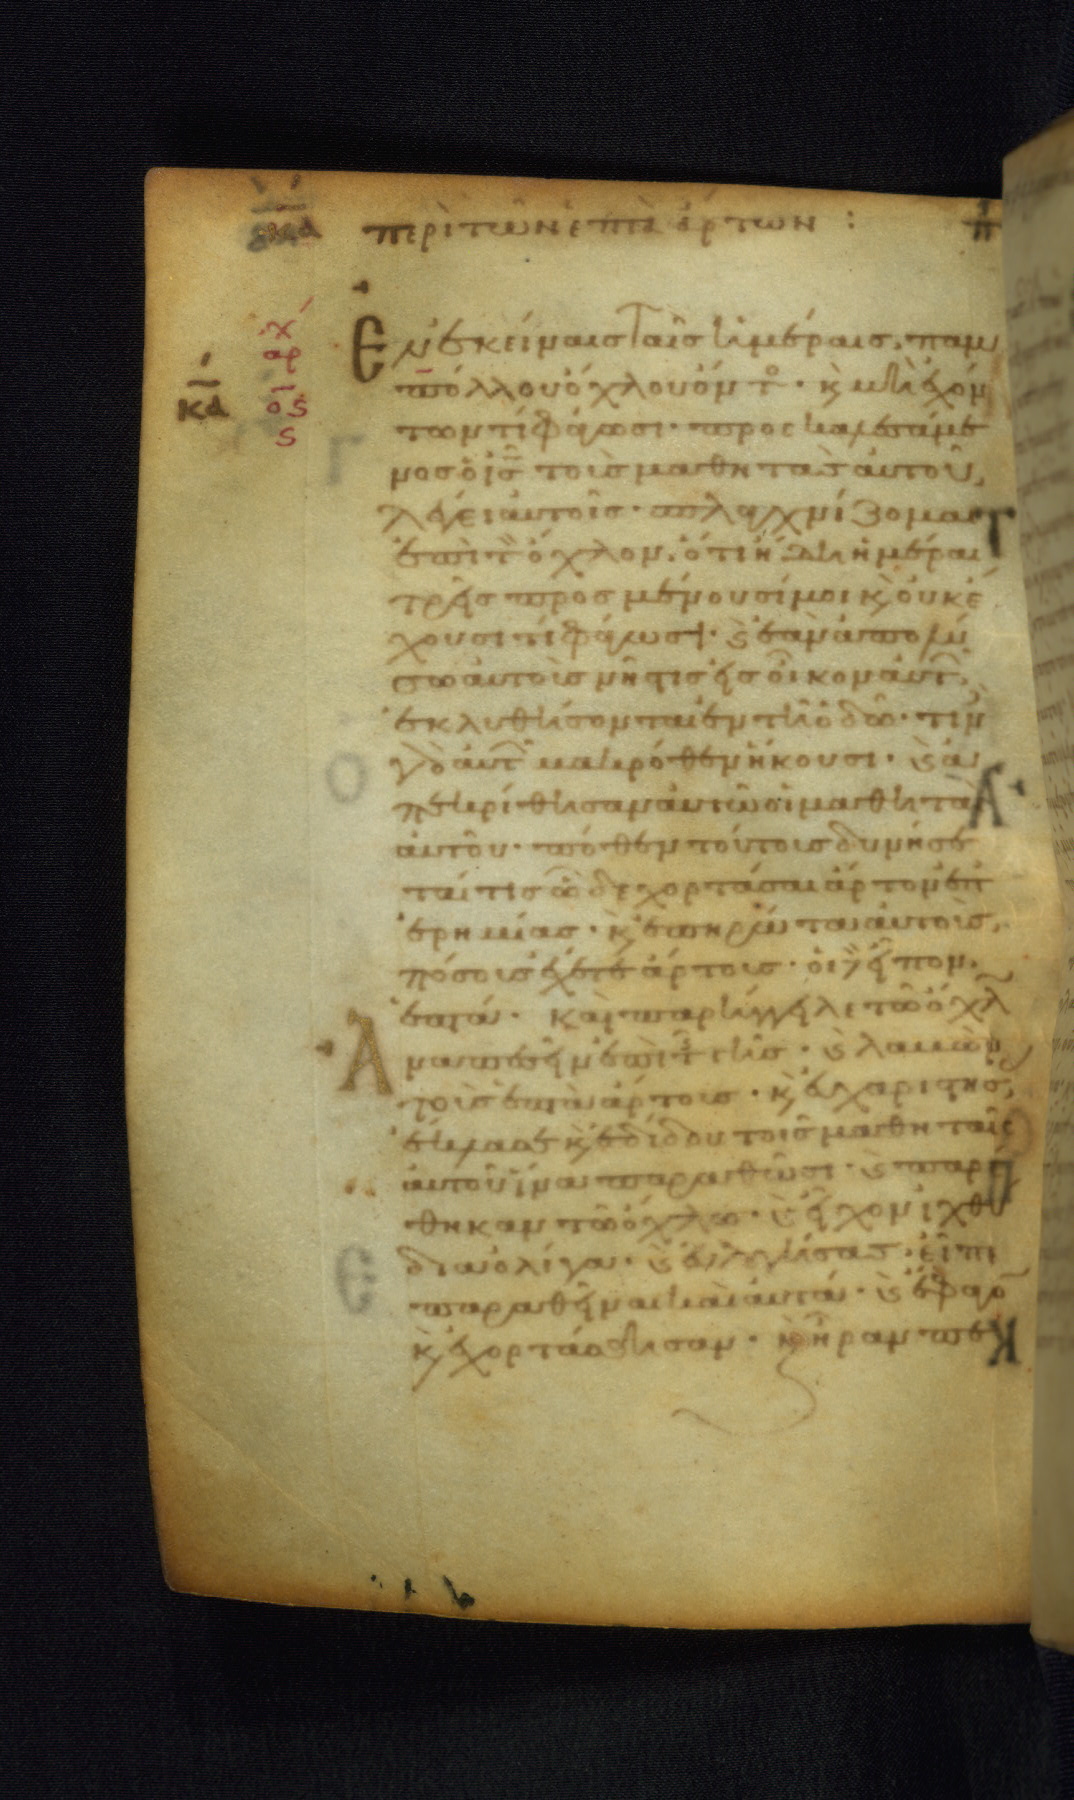 περὶ τῶν ἑπτὰ ἄρτων :
Ἐν ἐκείναις ταῖς ἡμέραις, παμ
πόλλου ὄχλου ὄντο(ς)· κ(αὶ) μὴ ἐχόν
των τί φάγωσι· προσκαλεσάμε
νος ὁ ἰς τοὺς μαθητὰς αὐτοῦ,
λέγει αὐτοῖς· σπλαγχνίζομαι
ἐπὶ τ(ὸν) ὄχλον, ὅτι ἤδη ἡμέραι
τρεῖς προσμένουσί μοι κ(αὶ) οὐκ ἔ
χουσι τί φάγωσι· κ(αὶ) ἐὰν ἀπολύ
σω αὐτοὺς νήστις εἰς οἶκον αὐτ(ῶν),
ἐκλυθήσονται ἐν τῇ ὁδῷ· τιν(ὲς)
γὰρ αὐτ(ῶν) μακρόθεν ἥκουσι· κ(αὶ) ἀ
πεκρίθησαν αὐτῷ οἱ μαθηταὶ
αὐτοῦ· πόθεν τούτους δυνήσε
ταί τις ὧδε χορτάσαι ἄρτον ἐπ
ἐρημίας· κ(αὶ) ἐπηρώτα αὐτοὺς,
πόσους ἔχετε ἄρτους· οἱ δὲ εἶπον·
ἑπτά· καὶ παρήγγειλε τῷ ὄχλ(ῳ)
ἀναπεσεῖν ἐπὶ τ(ῆς) γῆς· κ(αὶ) λαβὼν
τοὺς ἑπτὰ ἄρτους· κ(αὶ) εὐχαριστήσ(ας)
ἔκλασε κ(αὶ) ἐδίδου τοῖς μαθηταῖς
αὐτοῦ ἵνα παραθῶσι· κ(αὶ) παρέ
θηκαν τῷ ὄχλῳ· κ(αὶ) εἶχον ἰχθύ
δια ὀλίγα· κ(αὶ) εὐλογήσας· εἶπε
παραθεῖναι καὶ αὐτά· κ(αὶ) ἔφαγο(ν)
κ(αὶ) ἐχορτάσθησαν· κ(αὶ) ἦραν πε
κδ